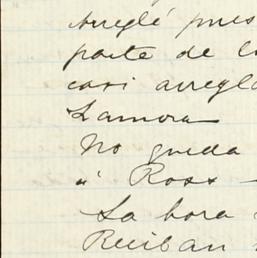 Arreglé pues
parte de l
casi arregl
Zamora
No queda
" Ross —
La hora
Reciban